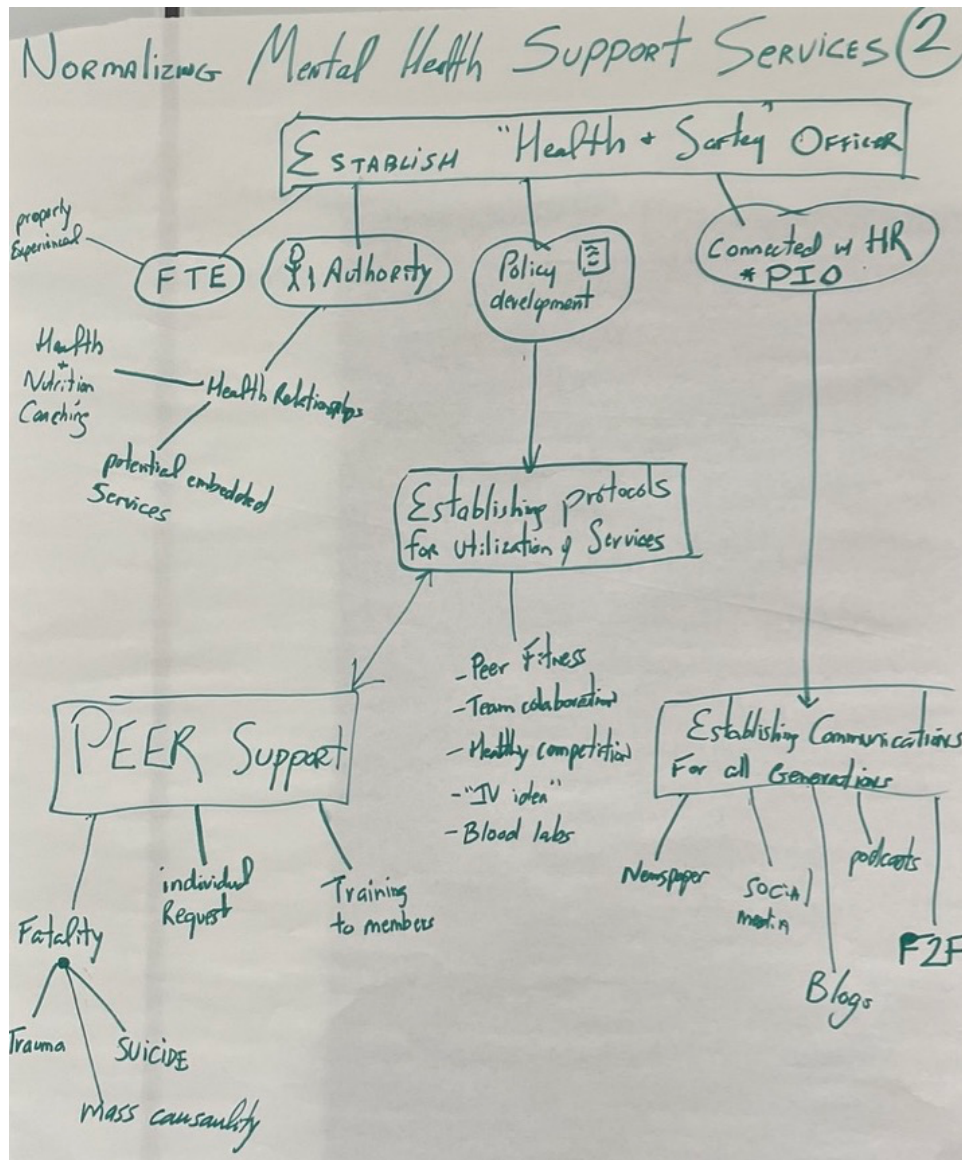 NORMALIZING Mental Health SUPPORT SERVICES 2
ESTABLISH "Health + Saftey" OFFICER
properly
Experienced
FTE
Authority
Policy
development
Connected w HR
* PIO
Health
+
Nutrition
Coaching
Health Relationships
potential embedded
Services
Establishing protocols
for utilization of Services
- Peer Fitness
- Team colaboration
- Healthy competition
- "IV idea"
- Blood labs
PEER Support
Establishing Communications
For all Generations
Fatality
individual
Request
Training
to members
Newspaper
SOCIAl
media
Blogs
podcasts
F2F
Trauma
SUICIDE
mass causaulity